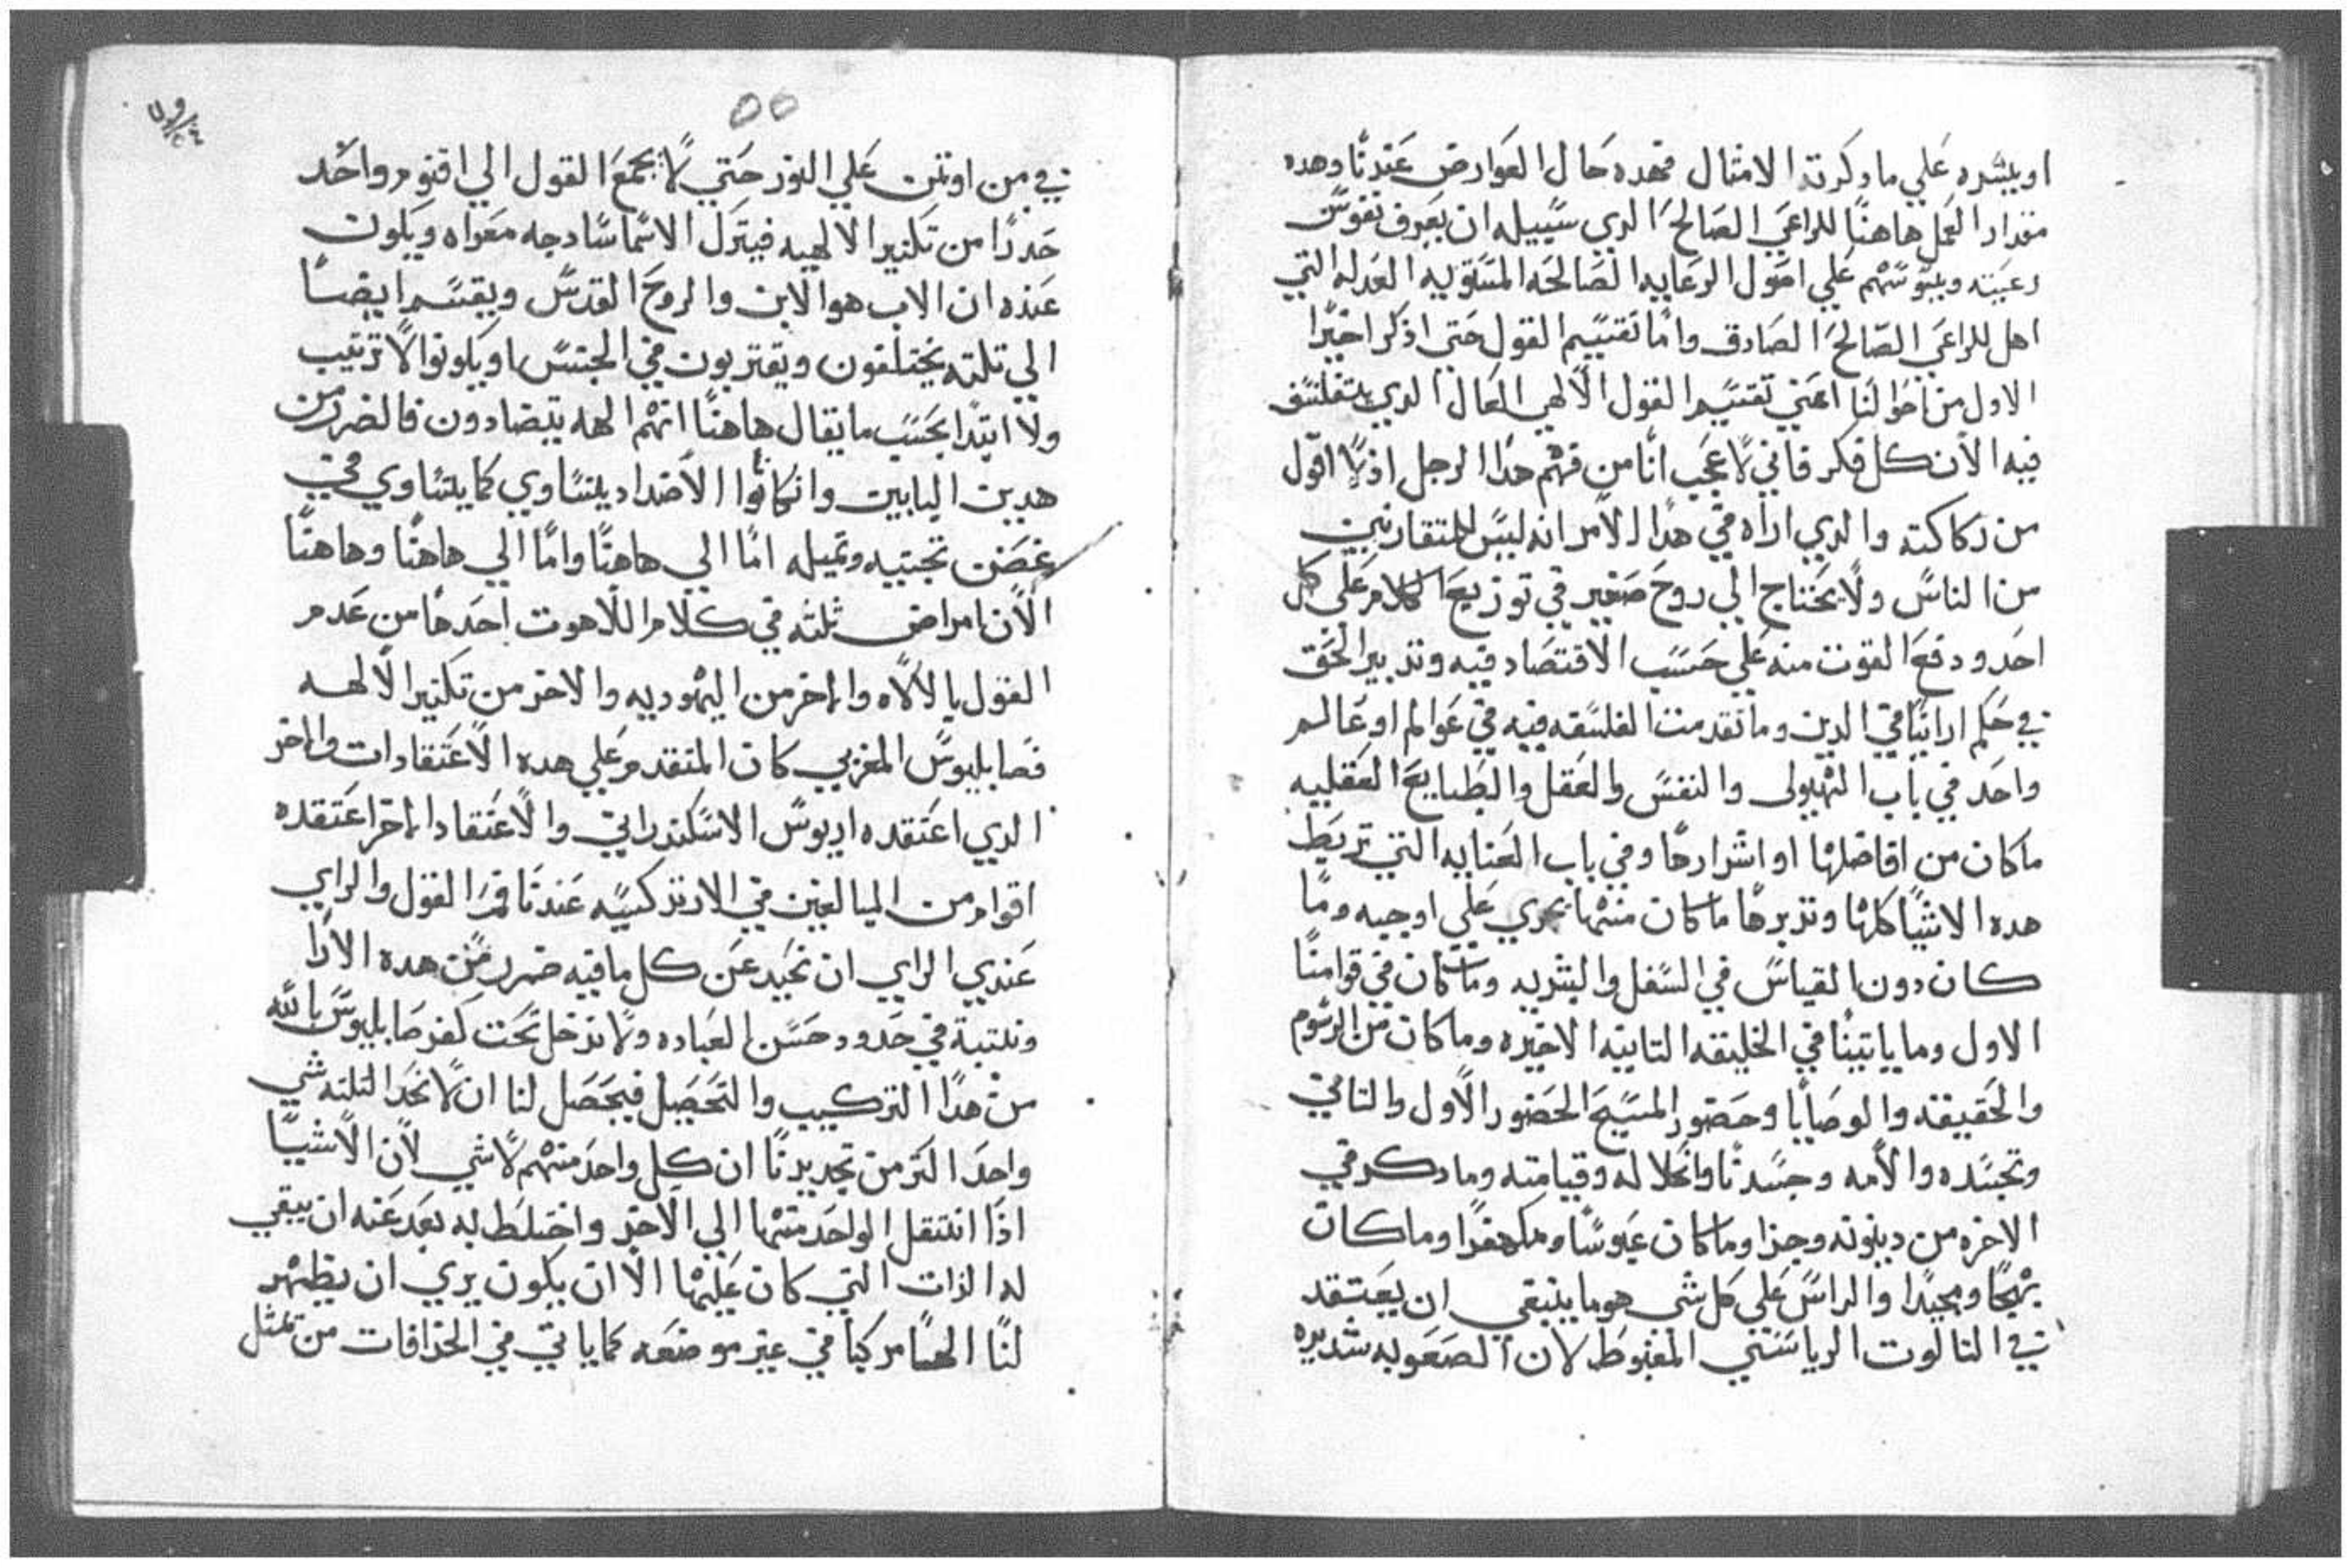 او يبشره علي ما دكرته الامثال فهده حال العوارض عندنا وهده
مقدار العمل هاهنا للراعي الصالح الدي سبيله ان يعرف نفوس
رعيته ويسوسهم علي اصول الرعايه الصالحه المستويه العدله التي
اهل للراعي الصالح الصادق واما تقسيم القول حتي اذكر اخيرا
الاول من احوالنا اعني تقسيم القول الالهي العال الدي يتفلسف
فيه الان كل فكر فاني لاعجب انا من فهم هدا الرجل اولا اقول
من ركاكته والدي اراه في هدا الامر انه ليس للمتقارنين
من الناس ولا يحتاج الي روح صغير في توزيع الكلام علي كل
احد ودفع القوت منه علي حسب الاقتصاد فيه وتدبير الحق
في حكم اراينا في الدين وما تقدمت الفلسفه فيه في عوالم او عالم
واحد في باب الهيولى والنفس والعقل والطبايع العقليه
ما كان من افاضلها او اشرارها وفي باب العنايه التي تربط
هده الاشيا كلها وتدبرها ما كان منها يجري علي اوجبه وما
كان دون القياس في السفل والبشريه وما كان في قوامنا
الاول وما ياتينا في الخليقه التانيه الاخيره وما كان من الرسوم
والحقيقه والوصايا وحضور المسيح الحضور الاول والتاني
وتجسده والامه وجسدنا وانحلاله وقيامته وما دكر في
الاخره من دينونه وجزا وما كان عبوسا ومكهفرا وما كان
بهجا ومجيدا والراس علي كل شي هو ما ينبغي ان يعتقد
في التالوت الرياسي المغبوط لان الصعوبه شديده
في من اوتمن علي النور حتي لا يجمع القول الي اقنوم واحد
حدرا من تكثير الالهيه فيترك الاسما سادجه معراه ويكون
عنده ان الاب هو الابن والروح القدس ويقسم ايضا
الي تلته يختلفون ويفتربون في الجنس او يكونوا لا ترتيب
ولا ابتدا بحسب ما يقال هاهنا انهم الهه يتضادون فالضرر من
هدين البابين وان كانوا الاضداد يتساوي كما يتساوي في
غصن تجتنيه وتميله اما الي هاهنا واما الي هاهنا وهاهنا
الان امراض ثلثه في كلام اللاهوت احدها من عدم
القول بالالاه والاخر من اليهوديه والاخر من تكثير الالهه
فصابليوس المغربي كان المتقدم علي هده الاعتقادات والاخر
الدي اعتقده اريوس الاسكندراني والاعتقاد الاخر اعتقده
اقوام من المبالغين في الارتدكسيه عندنا فما القول والراي
عندي الراي ان نحيد عن كل ما فيه ضرر من هده الارا
ونلتبة في حدود حسن العباده ولا ندخل تحت كفر صابليوس بالله
من هدا التركيب والتحصيل فيحصل لنا ان لا نحد التلته شي
واحد اكتر من تحديدنا ان كل واحد منهم لاشي لان الاشيا
اذا انتقل الواحد منها الي الاخر واختلط به بعد عنه ان يبقي
له الذات التي كان عليها الا ان يكون يري ان يظهر
لنا الها مركبا في غير موضعه كما ياتي في الخرافات من تمثل